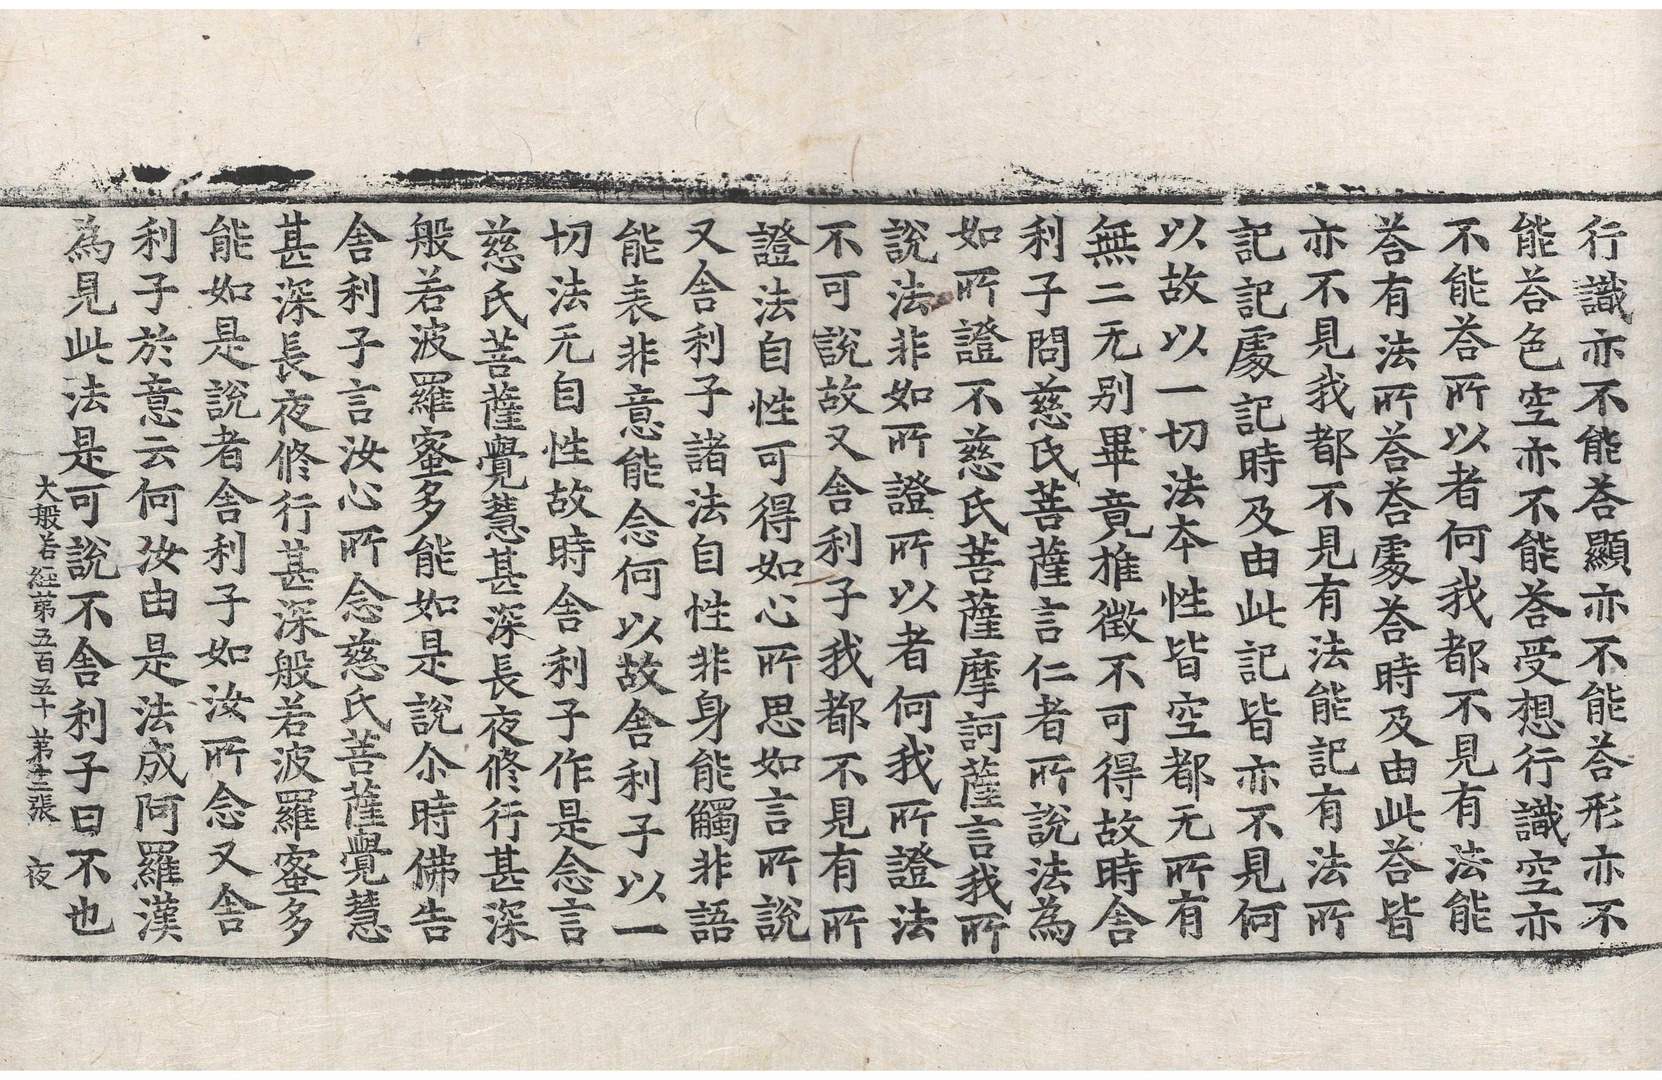 行識亦不能荅顯亦不能荅形亦不
能荅色空亦不能荅受想行識空亦
不能荅所以者何我都不見有法能
荅有法所荅荅處荅時及由此荅皆
亦不見我都不見有法能記有法所
記記處記時及由此記皆亦不見何
以故以一切法本性皆空都无所有
無二无别畢竟推徵不可得故時舍
利子問慈氏菩薩言仁者所說法為
如所證不慈氏菩薩摩訶薩言我所
說法非如所證所以者何我所證法
不可說故又舍利子我都不見有所
證法自性可得如心所思如言所說
又舍利子諸法自性非身能觸非語
能表非意能念何以故舍利子以一
切法无自性故時舍利子作是念言
慈氏菩薩覺慧甚深長夜修行甚深
般若波羅蜜多能如是說尒時佛告
舍利子言汝心所念慈氏菩薩覺慧
甚深長夜修行甚深般若波羅蜜多
能如是說者舍利子如汝所念又舍
利子於意云何汝由是法成阿羅漢
為見此法是可說不舍利子曰不也
大般若經苐五百五十 苐十三張 夜